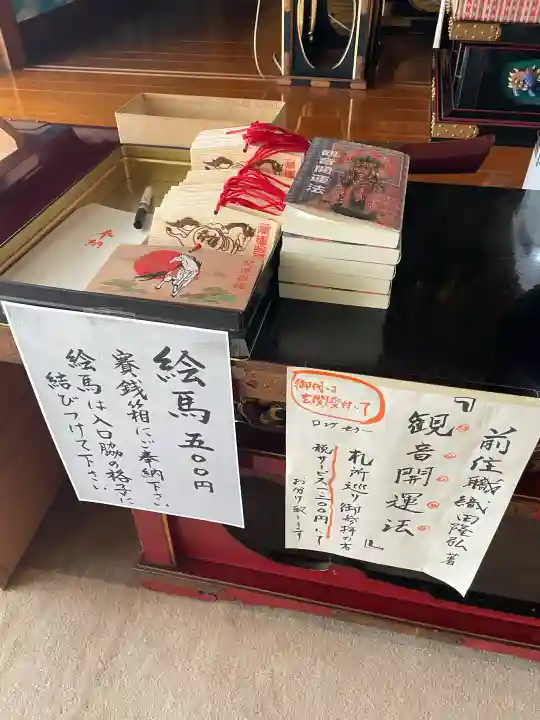 観音開運法
奉納
開運
絵馬 五〇〇円
賽銭箱にご奉納下さい
絵馬は入口脇の格子に
結びつけて下さい
前住職 織田隆弘 著
『観音開運法』
ロングセラー
札所巡り御参拝の方
税サービス一三〇〇円にて
お分け致します
御付は
玄関受付にて